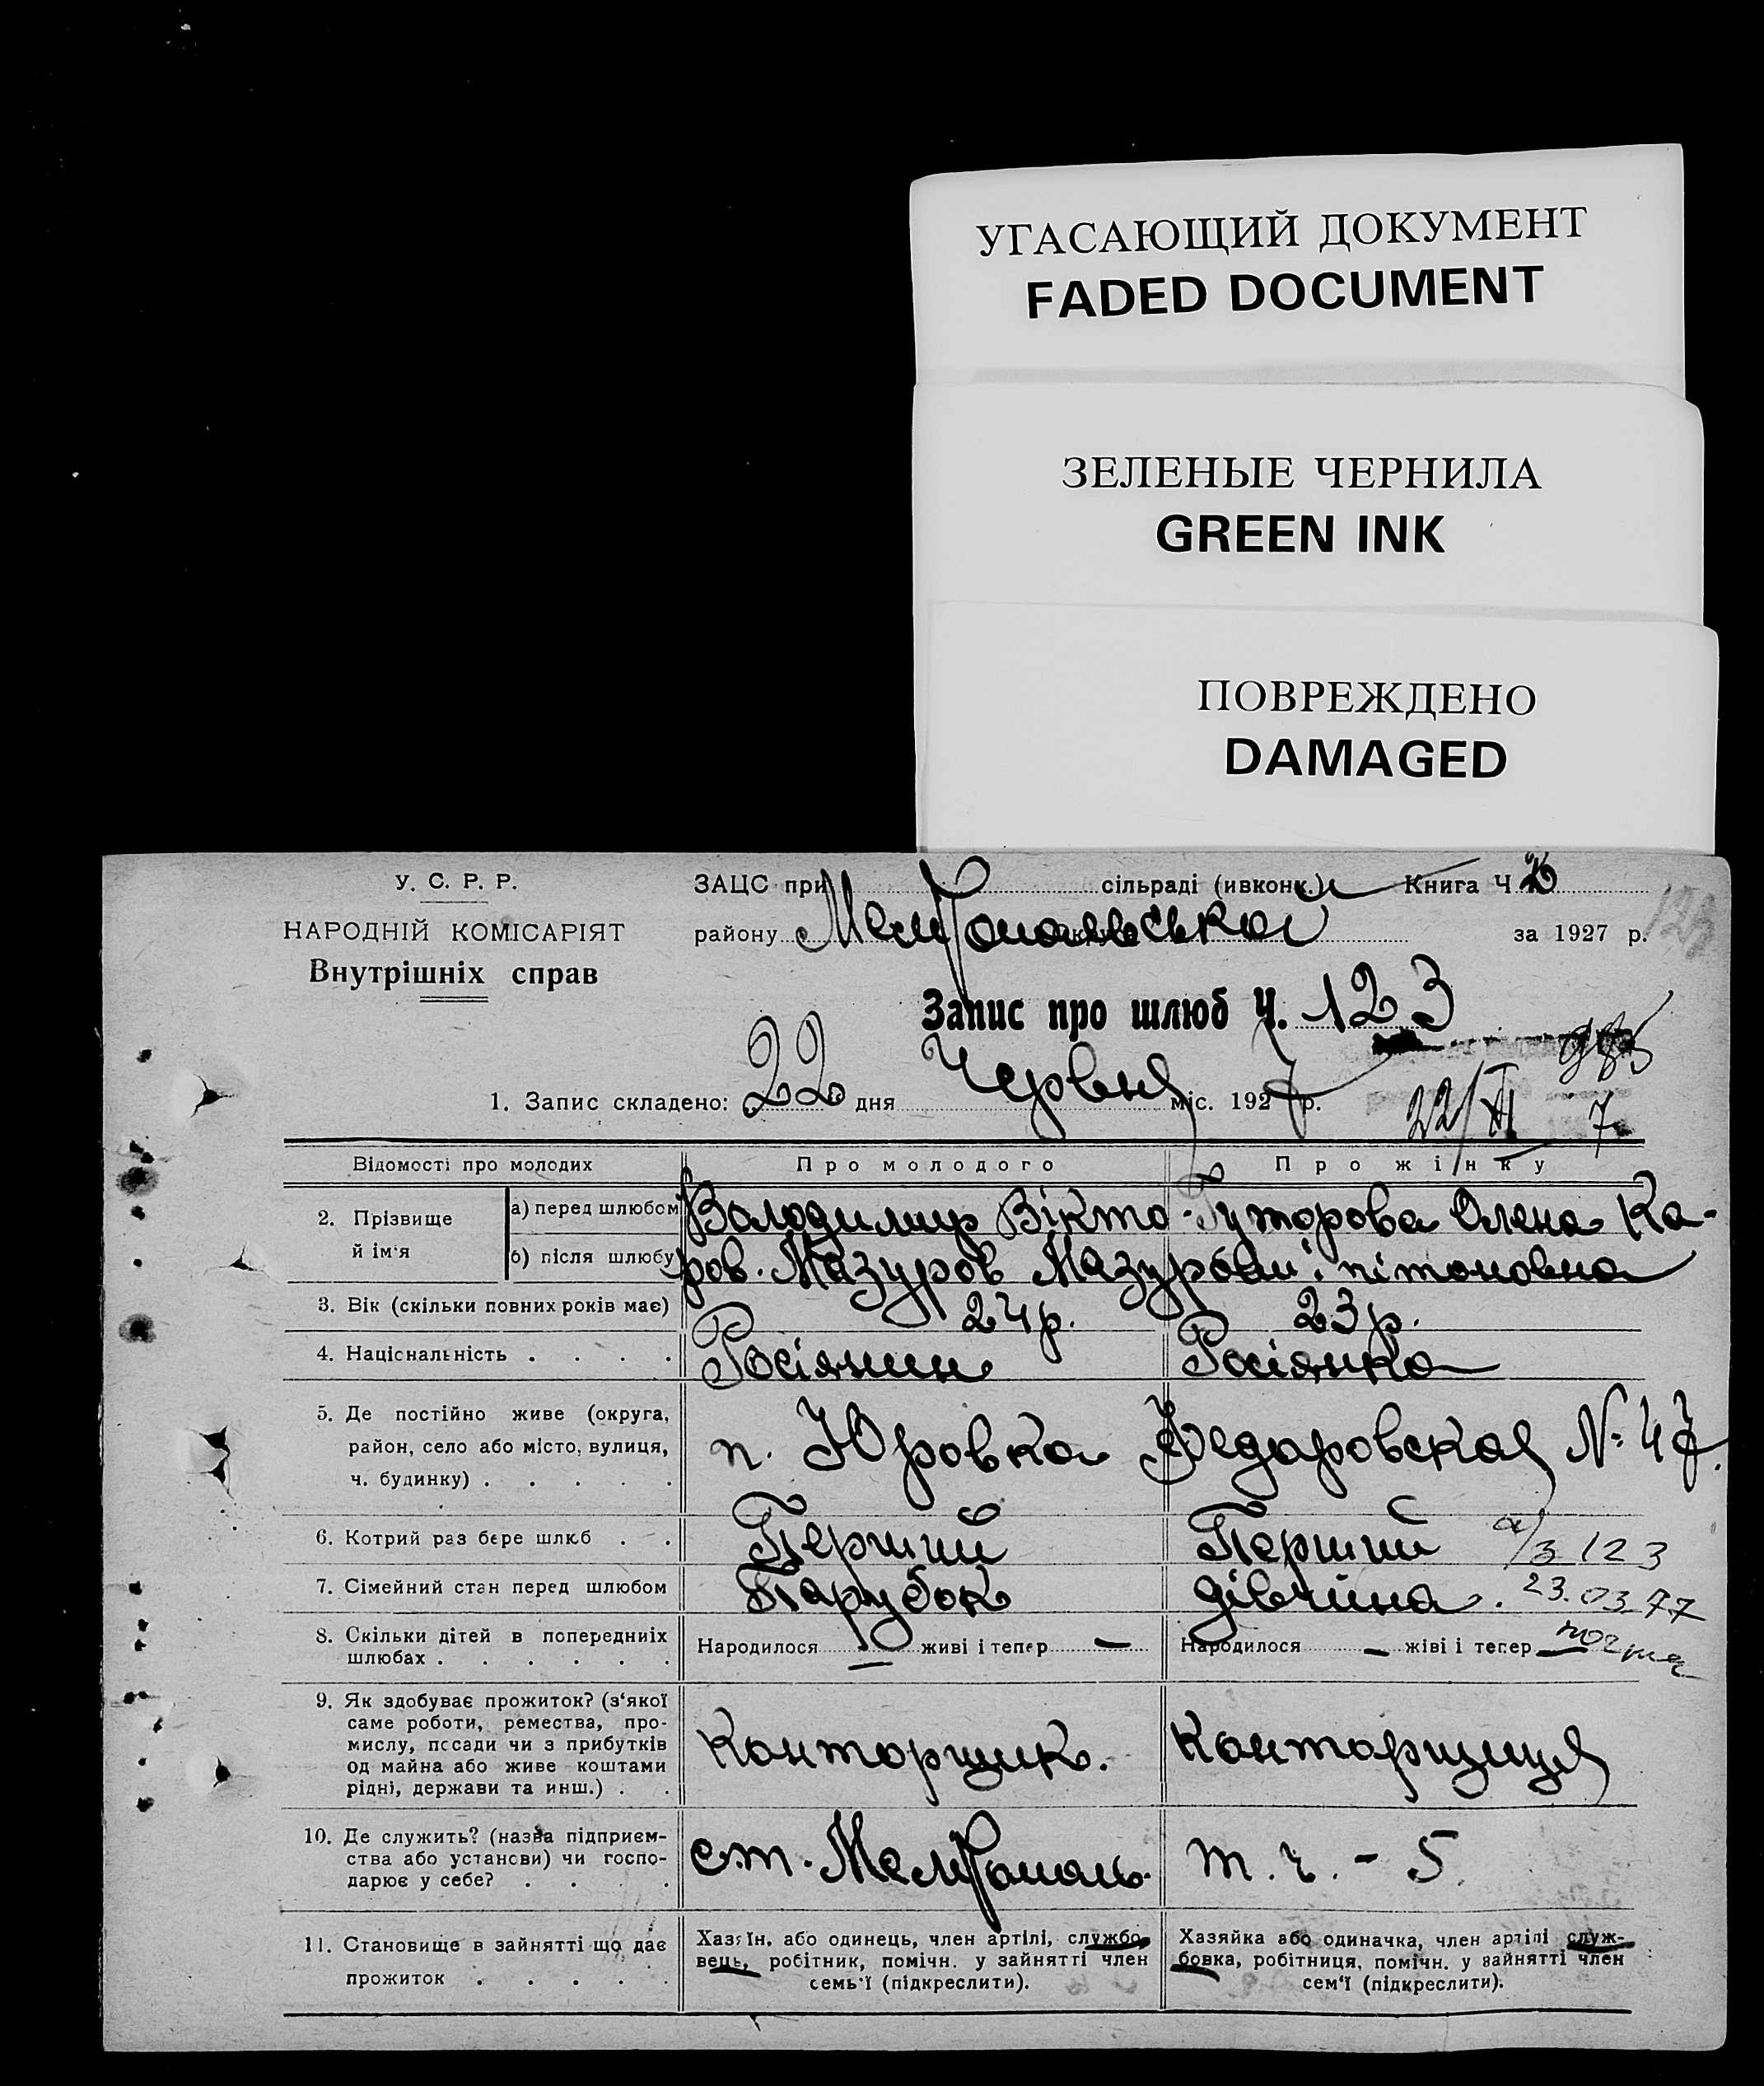 УГАСАЮЩИЙ ДОКУМЕНТ
FADED DOCUMENT
ЗЕЛЕНЫЕ ЧЕРНИЛА
GREEN INK
ПОВРЕЖДЕНО
DAMAGED
У. С. Р. Р.
НАРОДНІЙ КОМІСАРІЯТ
Внутрішніх справ
ЗАЦС при сільраді (ивконк.) Книга Ч
району за 1927 р.
Запис про шлюб Ч. 123
1. Запис складено: 22 дня Червня міс. 1927 р.
22/VI 7
Відомості про молодих Про молодого Про жінку
2. Прізвище й ім'я
а) перед шлюбом Володимир Вікто- Гуторова Олена Ка-
б) після шлюбу ров. Мазуров Мазурови. пітоновна
3. Вік (скільки повних років має) 24 р. 23 р.
4. Національність . . . . Росіянин Росіянка
5. Де постійно живе (округа,
район, село або місто, вулиця,
ч. будинку) . . . . .
п. Юровка Федаровская № 47.
6. Котрий раз бере шлюб . . Перший Перший
3 123
7. Сімейний стан перед шлюбом Парубок дівчина. 23.03.77
8. Скільки дітей в попередніх
шлюбах . . . . . .
Народилося — живі і тепер — Народилося — жіві і тепер —
9. Як здобуває прожиток? (з'якої
саме роботи, ремества, про-
мислу, посади чи з прибутків
од майна або живе коштами
рідні, держави та инш.) . .
Конторщик. Конторщиця
10. Де служить? (назва підприєм-
ства або установи) чи госпо-
дарює у себе? . . . .
ст. Мелітополь. т. ч. - 5.
11. Становище в зайнятті що дає
прожиток . . . . .
Хазяїн, або одинець, член артілі, службо-
вець, робітник, помічн. у зайнятті член
семь'ї (підкреслити).
Хазяйка або одиначка, член артілі служ-
бовка, робітниця, помічн. у зайнятті член
сем'ї (підкреслити).